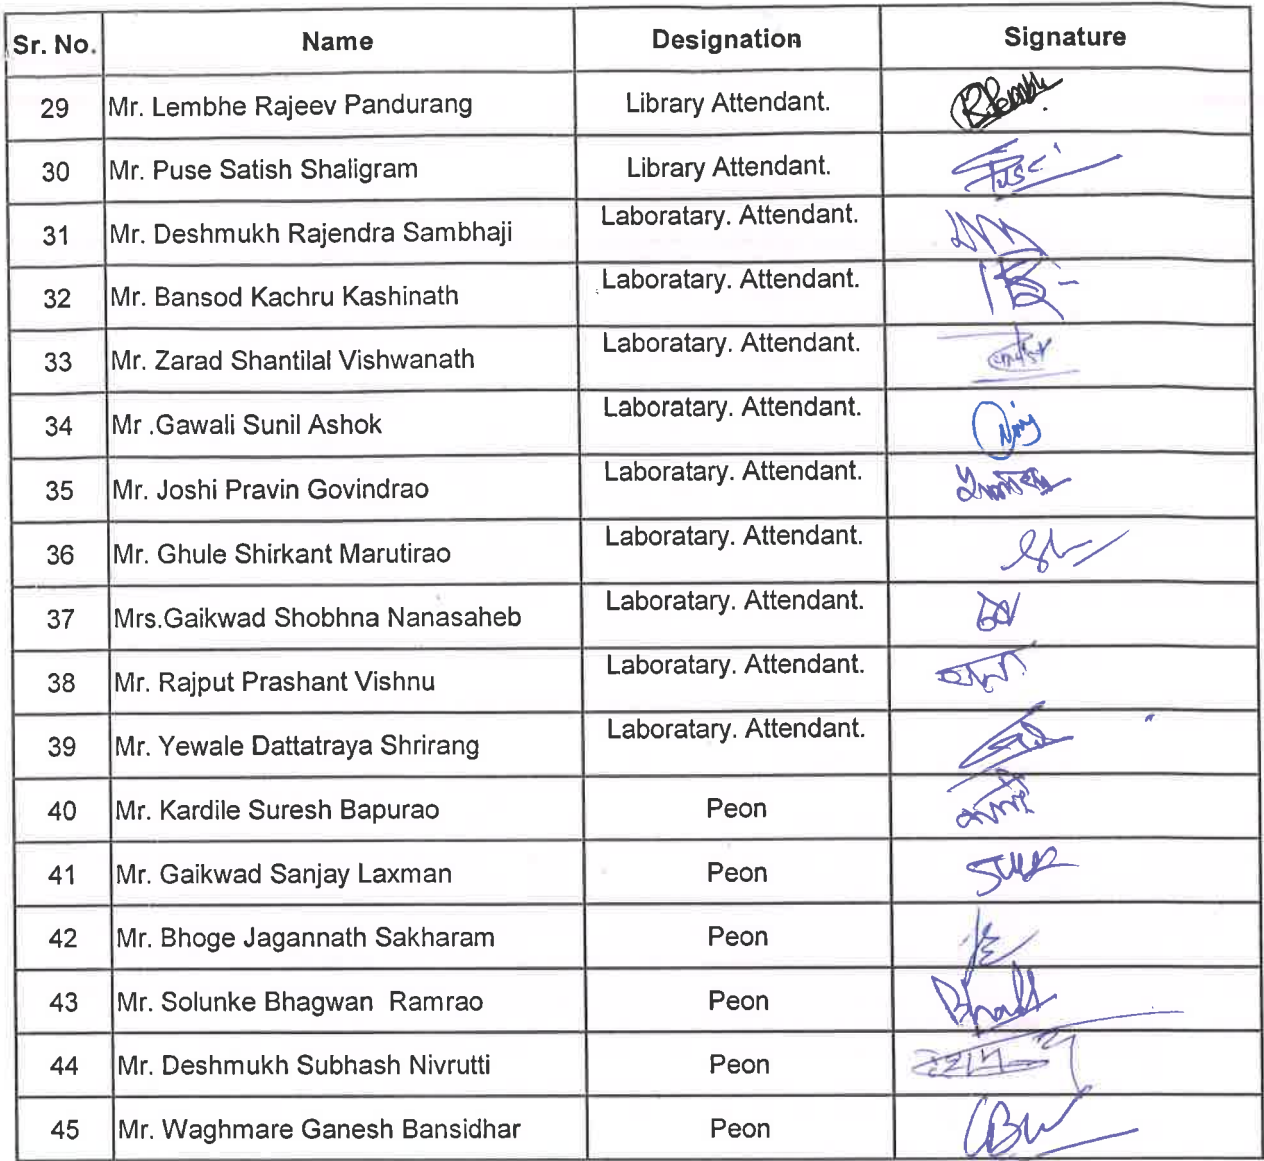 Sr. No. Name Designation Signature
29 Mr. Lembhe Rajeev Pandurang Library Attendant.
30 Mr. Puse Satish Shaligram Library Attendant.
31 Mr. Deshmukh Rajendra Sambhaji Laboratary. Attendant.
32 Mr. Bansod Kachru Kashinath Laboratary. Attendant.
33 Mr. Zarad Shantilal Vishwanath Laboratary. Attendant.
34 Mr .Gawali Sunil Ashok Laboratary. Attendant.
35 Mr. Joshi Pravin Govindrao Laboratary. Attendant.
36 Mr. Ghule Shirkant Marutirao Laboratary. Attendant.
37 Mrs.Gaikwad Shobhna Nanasaheb Laboratary. Attendant.
38 Mr. Rajput Prashant Vishnu Laboratary. Attendant.
39 Mr. Yewale Dattatraya Shrirang Laboratary. Attendant.
40 Mr. Kardile Suresh Bapurao Peon
41 Mr. Gaikwad Sanjay Laxman Peon
42 Mr. Bhoge Jagannath Sakharam Peon
43 Mr. Solunke Bhagwan Ramrao Peon
44 Mr. Deshmukh Subhash Nivrutti Peon
45 Mr. Waghmare Ganesh Bansidhar Peon